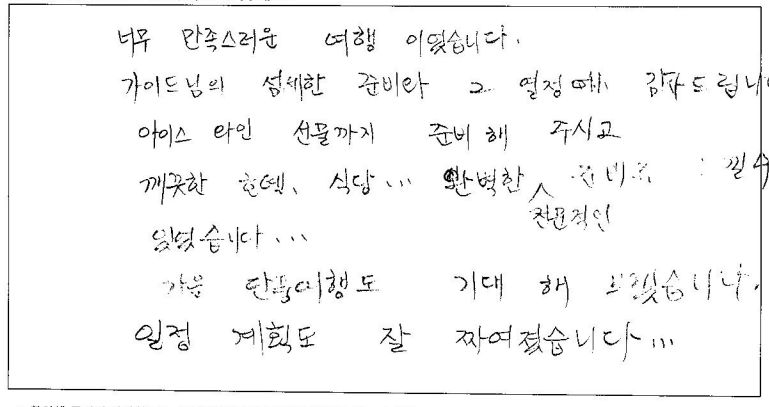 너무 만족스러운 여행 이였습니다.
가이드님의 섬세한 준비와 그 열정에 감사드립니
아이스 와인 선물까지 준비 해 주시고
깨끗한 호텔, 식당... 완벽한 준비로
전문적인
있었습니다...
가을 단풍여행도 기대 해 보겠습니다.
일정 계획도 잘 짜여졌습니다...